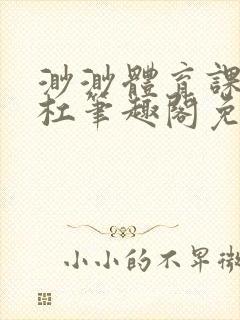 渺渺體育課
杜筆趣閣免
小小的不早微